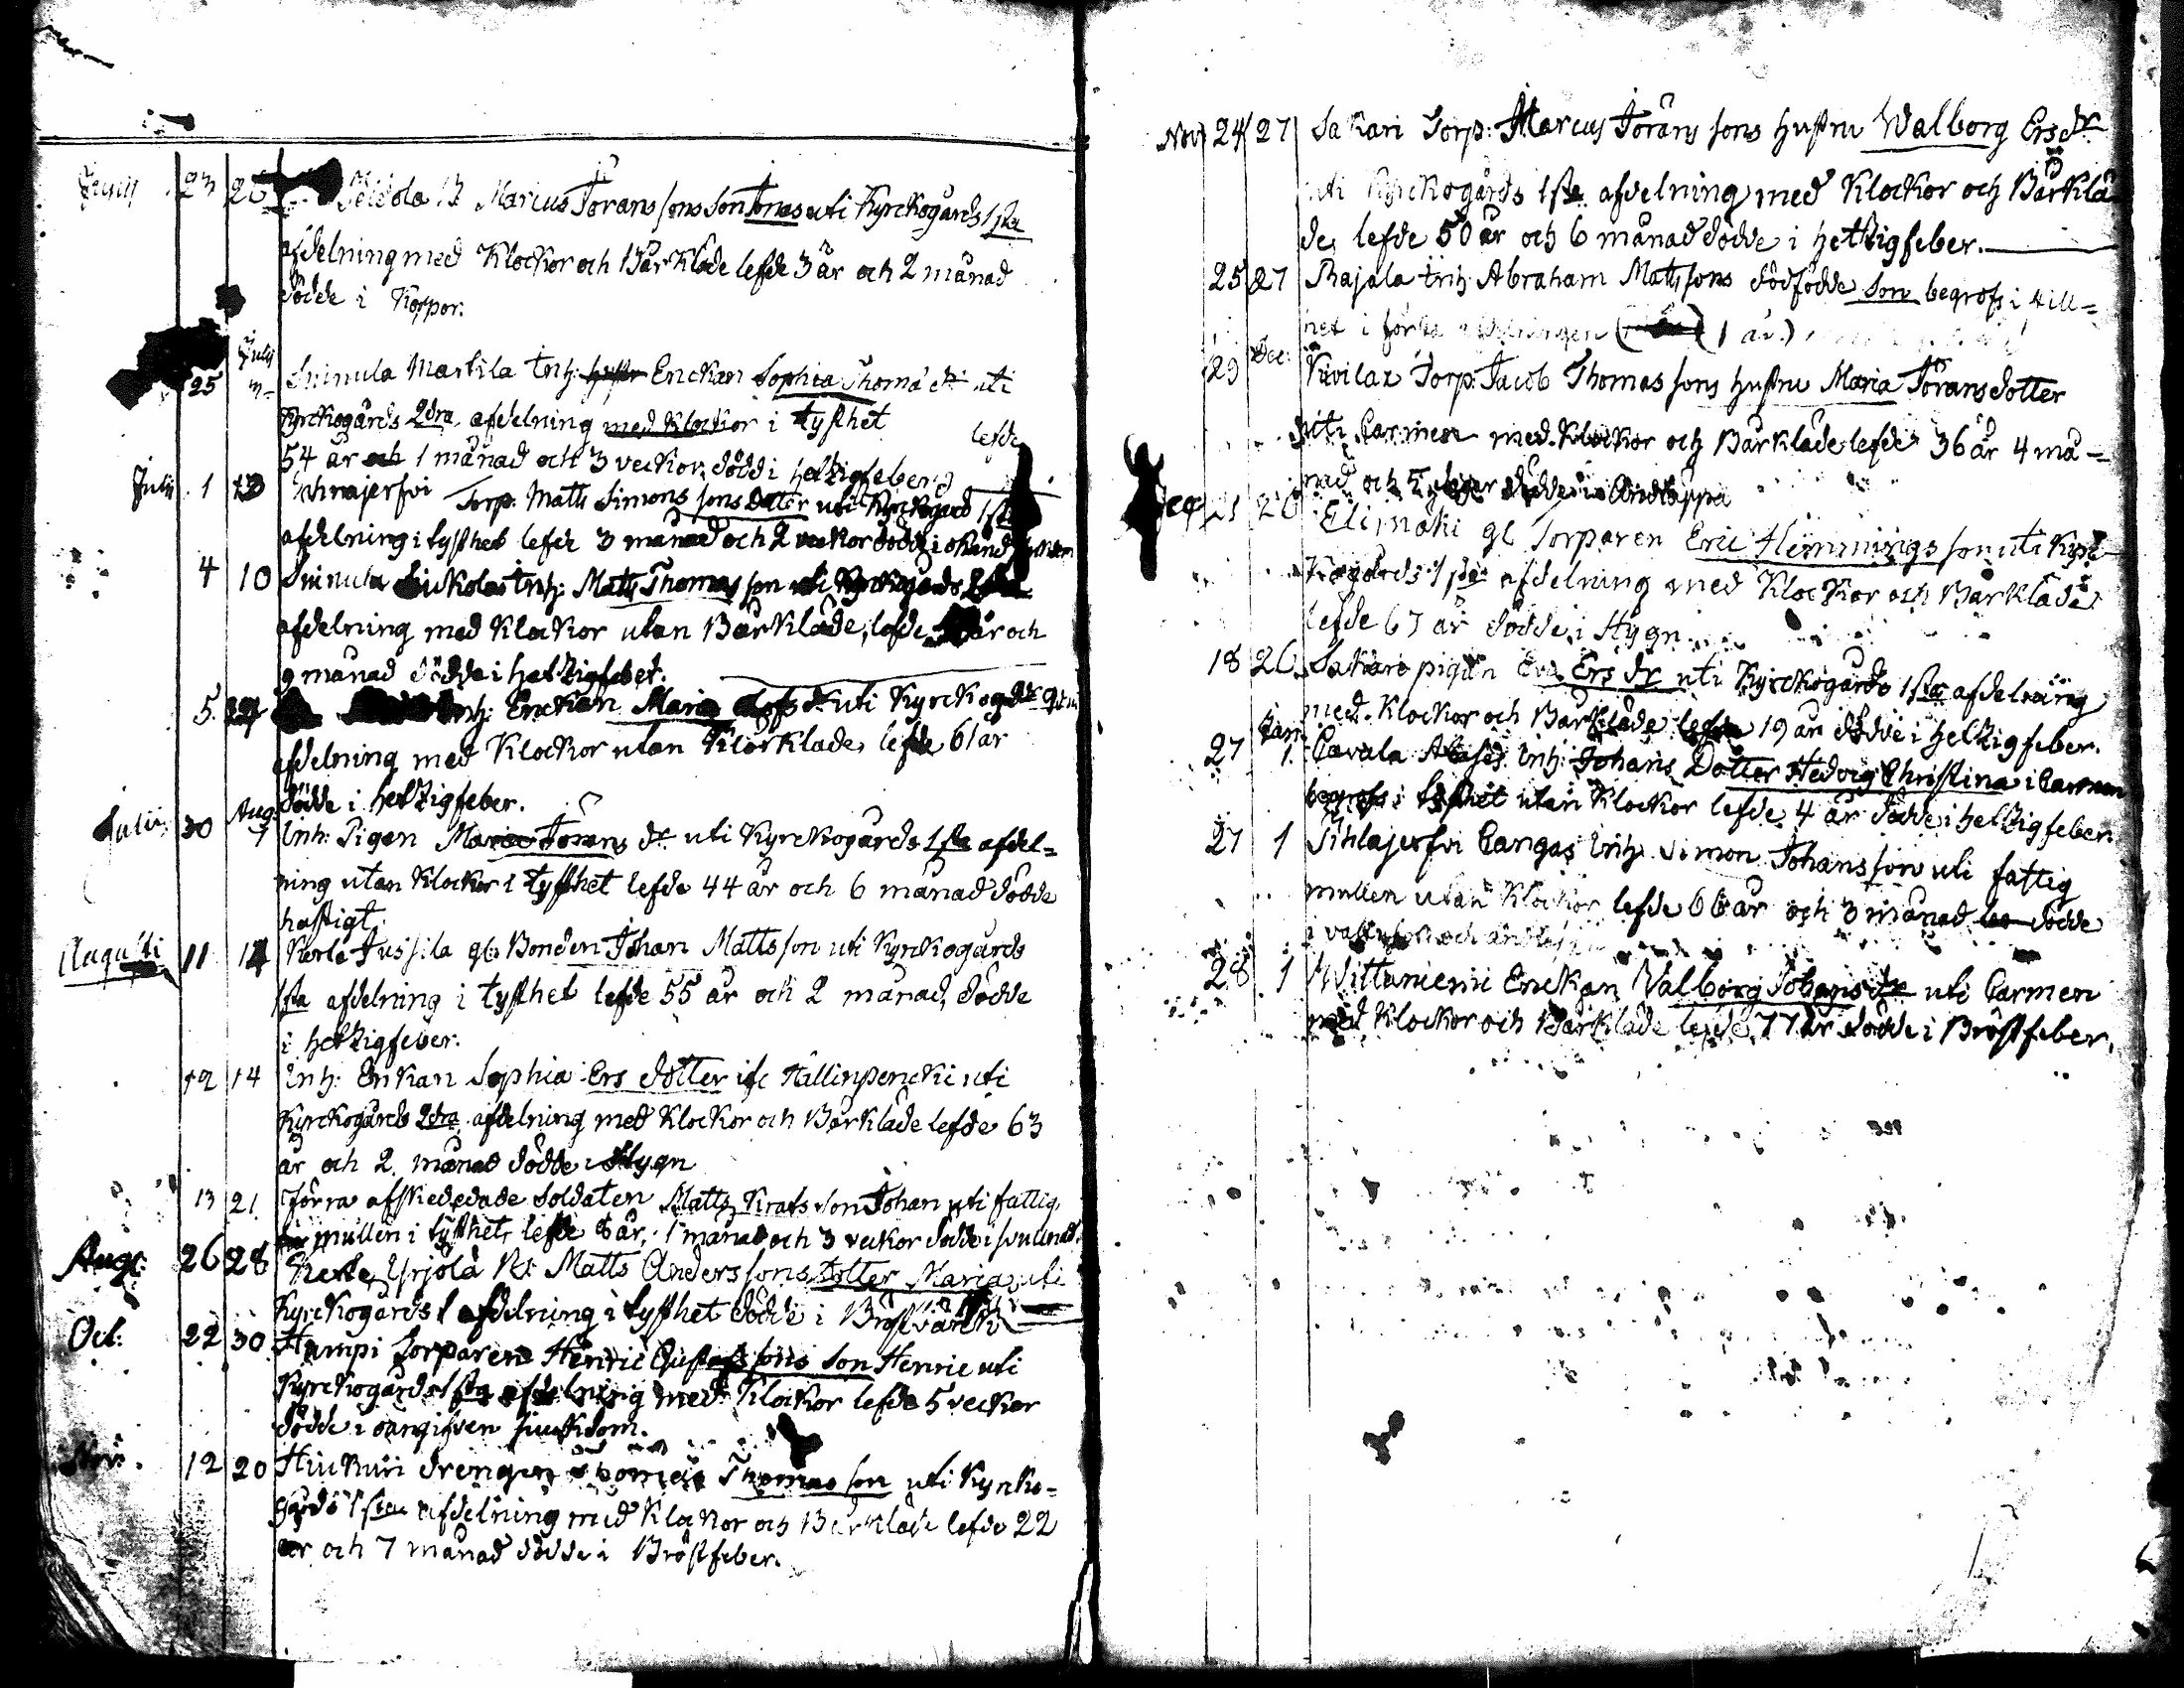 Junij 23 26 Seidola B. Marcus Jörans sons son Jonas uti Kyrckogårds 1sta
afdelning med Klockor och Bårkläde lefde 3 år och 2 månad
dödde i Koppor.
25 Julij Suinula Martila Inh: Enckan Sophia Thomæ dr uti
Kyrckogårds 2dra afdelning med Klockor i tysthet lefde
54 år och 1 månad och 3 veckor, dödd i hetzigfeber
Julii 1 Torp. Matts Simons sons Dotter uti Kyrckogård 1sta
afdelning i tysthet lefde 3 månad och 2 veckor dödde i okänd
4 10 Suinula Inh: Matts Thomas son uti Kyrckogårds
afdelning med Klockor utan Bårkläde, lefde år och
9 månad dödde i hetzigfeber.
5 Inh: Enckan Maria dr uti Kyrckog
afdelning med Klockor utan Klårklade, lefde 61 år
dödde i hetzigfeber.
Julii 30 Aug: 7 Inh: Pigan Maria Jörans dr uti Kyrckogårds 1sta afdel=
ning utan Klockor i tysthet lefde 44 år och 6 månad dödde
hastigt.
Augusti 11 14 Kerle Jussila gl. Bonden Johan Matts son uti Kyrckogårds
1sta afdelning i tysthet lefde 55 år och 2 månad, dödde
i hetzigfeber.
12 14 Inh: Enkan Sophia Ers dotter uti
Kyrckogårds 2dra afdelning med Klockor och Bårkläde lefde 63
år och 2 månad dödde i Stygn
13 21 Förra afskededade Soldaten Matts Krats son Johan uti fattig
mullen i tysthet, lefde år, 1 månad och 3 veckor dödde i svullnad.
Aug: 26 28 Kerle Yrjölä B: Matts Anders sons dotter Maria uti
Kyrckogårds 1 afdelning i tysthet dödde i Bröstvärck
Oct: 22 30 Humpi Torparen Henric Gustafs sons son Henric uti
Kyrckogårds 1sta afdelning med Klockor lefde 5 veckor
dödde i oangifven siuckdom.
Nov: 12 20 Hiukuri drengen Thomas Thomas son uti Kyrko=
gårds 1sta afdelning med Klockor och Bårkläde lefde 22
år och 7 månad dödde i Bröstfeber.
Nov 24 27 Sakari Torp: Marcus Jörans sons hustru Walborg Ers dr
uti Kyrckogårds 1sta afdelning med Klockor och Bårklä
de, lefde 50 år och 6 månad dödde i hetzigfeber.
25 27 Rajala Inh: Abraham Matts sons dödfödde son begrofs i till=
het i första afdelningen
29 Dec: Kivilax Torp: Jacob Thomas sons hustru Maria Jörans dotter
uti Carmen med Klockor och Bårkläde lefde 36 år 4 må=
nad och 5 dödde i Andtäppa
21 26 Elimäki gl Torparen Eric Hemmings son uti Kyrc
kogårds 1sta afdelning med Klockor och Bårkläde
lefde 67 år dödde i Stygn
18 26 Sakari pigan Eva Ers dr uti Kyrckogårds 1sta afdelning
med Klockor och Bårkläde lefde 19 år dödde i hetzigfeber.
27 Jan: 1 Cavala Inh: Johans Dotter Hedvig Christina i Carmen
begrofs i tysthet utan Klockor lefde 4 år dödde i hetzigfeber.
27 1 Sihlajerfvi Cangas Inh: Simon Johans son uti fattig
mullen utan Klockor lefde 66 år och 3 månad dödde
28 1 Wittaniemi Enckan Walborg Johans dr uti Carmen
med Klockor och Bårkläde lefde 77 år dödde i Bröstfeber.